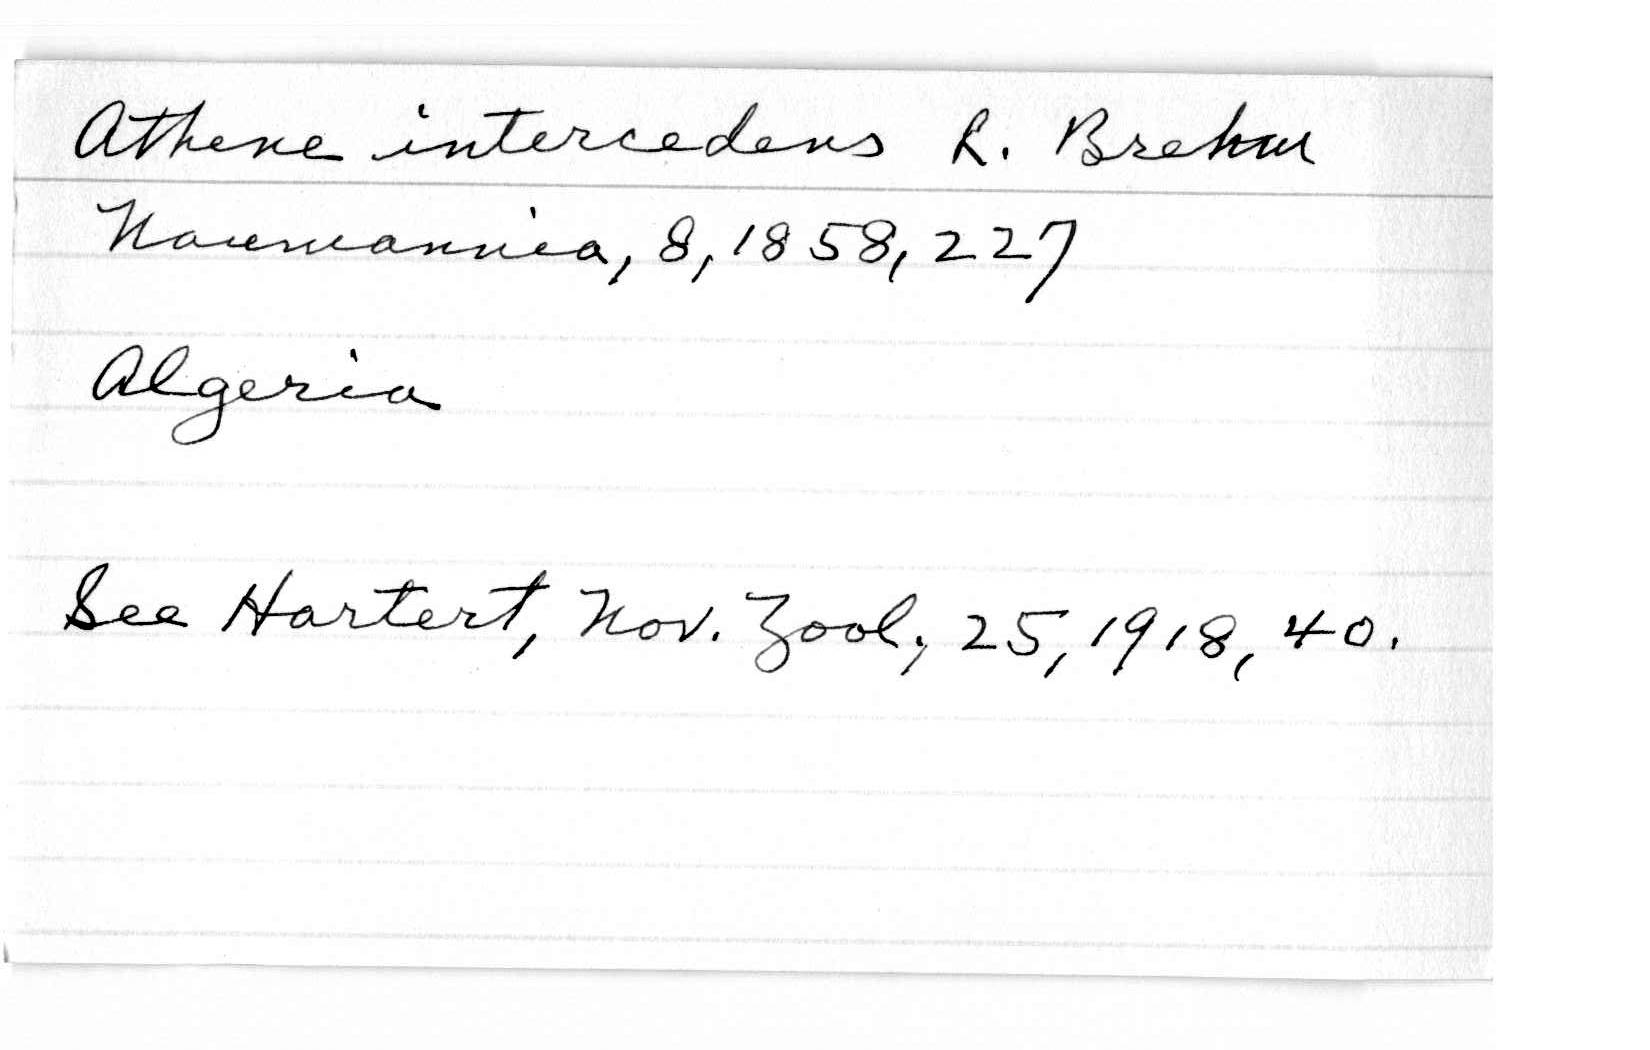 Athene intercedens R. Brehm
Naumannia, 8, 1858, 227
Algeria
See Hartert, Nov. Zool., 25, 1918, 40.